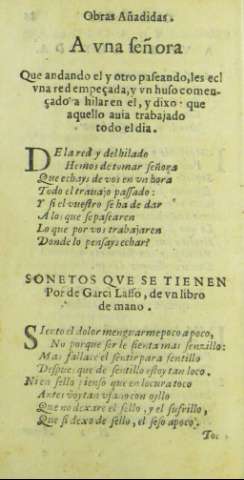 Obras Añadidas.
A vna señora
Que andando el y otro paseando, les echo
vna red empeçada, y vn huso comen-
çado a hilar en el, y dixo que
aquello auia trabajado
todo el dia.
DE la red y del hilado
Hemos de tomar señora
Que echays de vos en vn hora
Todo el trauajo passado:
Y si el vuestro se ha de dar
A los que se pasearen
Lo que por vos trabajaren
Donde lo pensays echar?
SONETOS QVE SE TIENEN
Por de Garci Lasso, de vn libro
de mano.
SIento el dolor menguarme poco a poco,
No porque ser le sienta mas senzillo:
Mas fallace el sentir para sentillo
Despues que de sentillo estoy tan loco.
Ni en sello pienso que en locura toco
Antes voy tan vfano con oyllo
Que no dexare el sello, y el sufrillo,
Que si dexo de sello, el seso apoco.